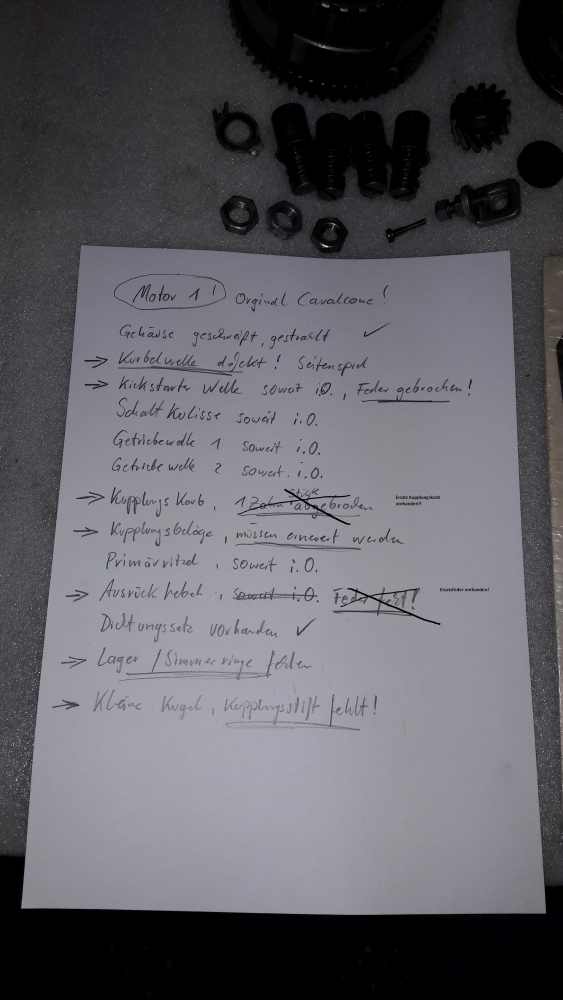 Motor 1! Orginal Cavalcone!
Gehäuse geschweißt, gestrahlt ✓
→ Kurbelwelle defekt! Seitenspiel
→ Kickstarter Welle soweit i.O., Feder gebrochen!
Schalt Kulisse soweit i.O.
Getriebewelle 1 soweit i.O.
Getriebewelle 2 soweit i.O.
→ Kupplungs Korb, 1 Zahn Stück abgebrochen Ersatz Kupplungskorb
vorhanden!!
→ Kupplungsbeläge, müssen erneuert werden
Primärritzel, soweit i.O.
→ Ausrück hebel, soweit i.O. Feder fehlt! Ersatzfeder vorhanden!
Dichtungssatz vorhanden ✓
→ Lager / Simmerringe fehlen
→ Kleine Kugel, Kupplungsstift fehlt!